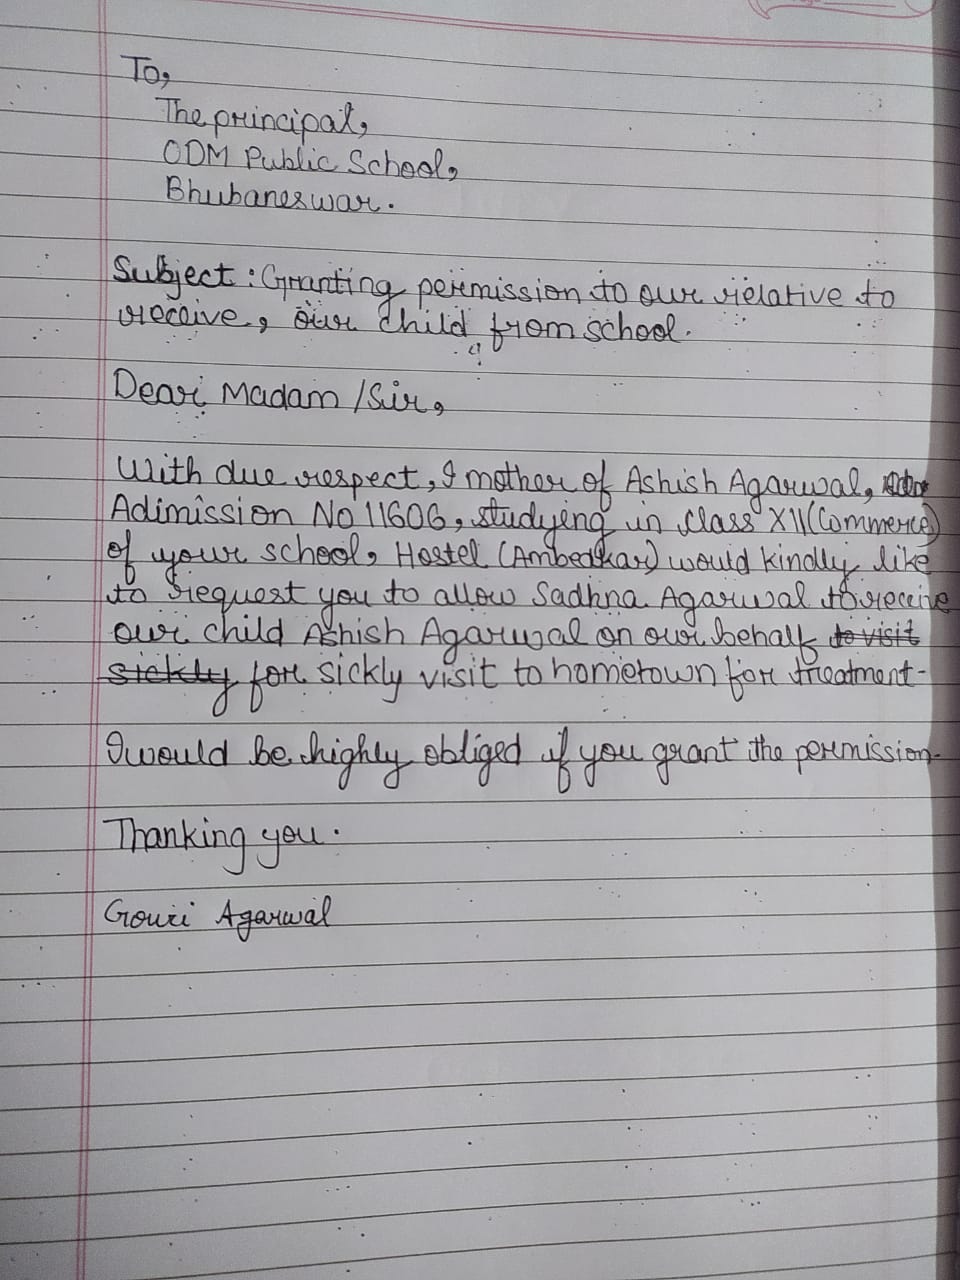 To,
The principal,
ODM Public School,
Bhubaneswar.
Subject : Granting permission to our relative to
receive, our child from school.
Dear Madam /Sir,
With due respect, I mother of Ashish Agarwal,
Adimission No 11606, studying in class XII (Commerce)
of your school, Hostel (Ambedkar) would kindly like
to request you to allow Sadhna Agarwal to receive
our child Ashish Agarwal on our behalf to visit
sickly for sickly visit to hometown for treatment-
I would be highly obliged if you grant the permission-
Thanking you.
Gouri Agarwal